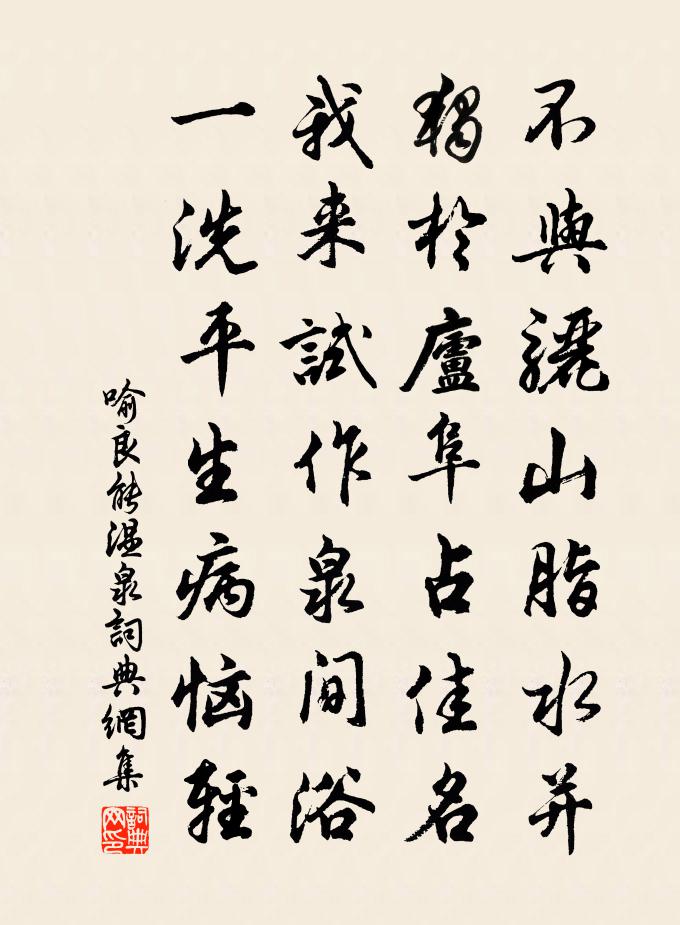 不與驪山脂水并
獨於廬阜占佳名
我来試作泉間浴
一洗平生病恼輕
喻良能温泉詞典網集
詞典网印